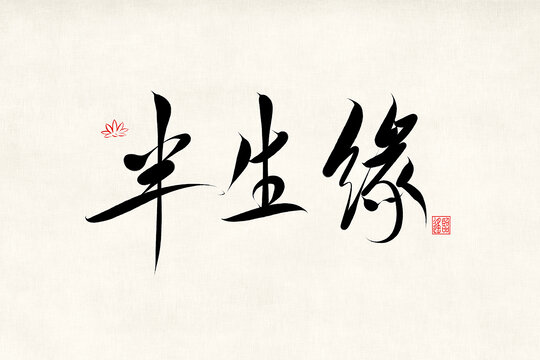 半生缘